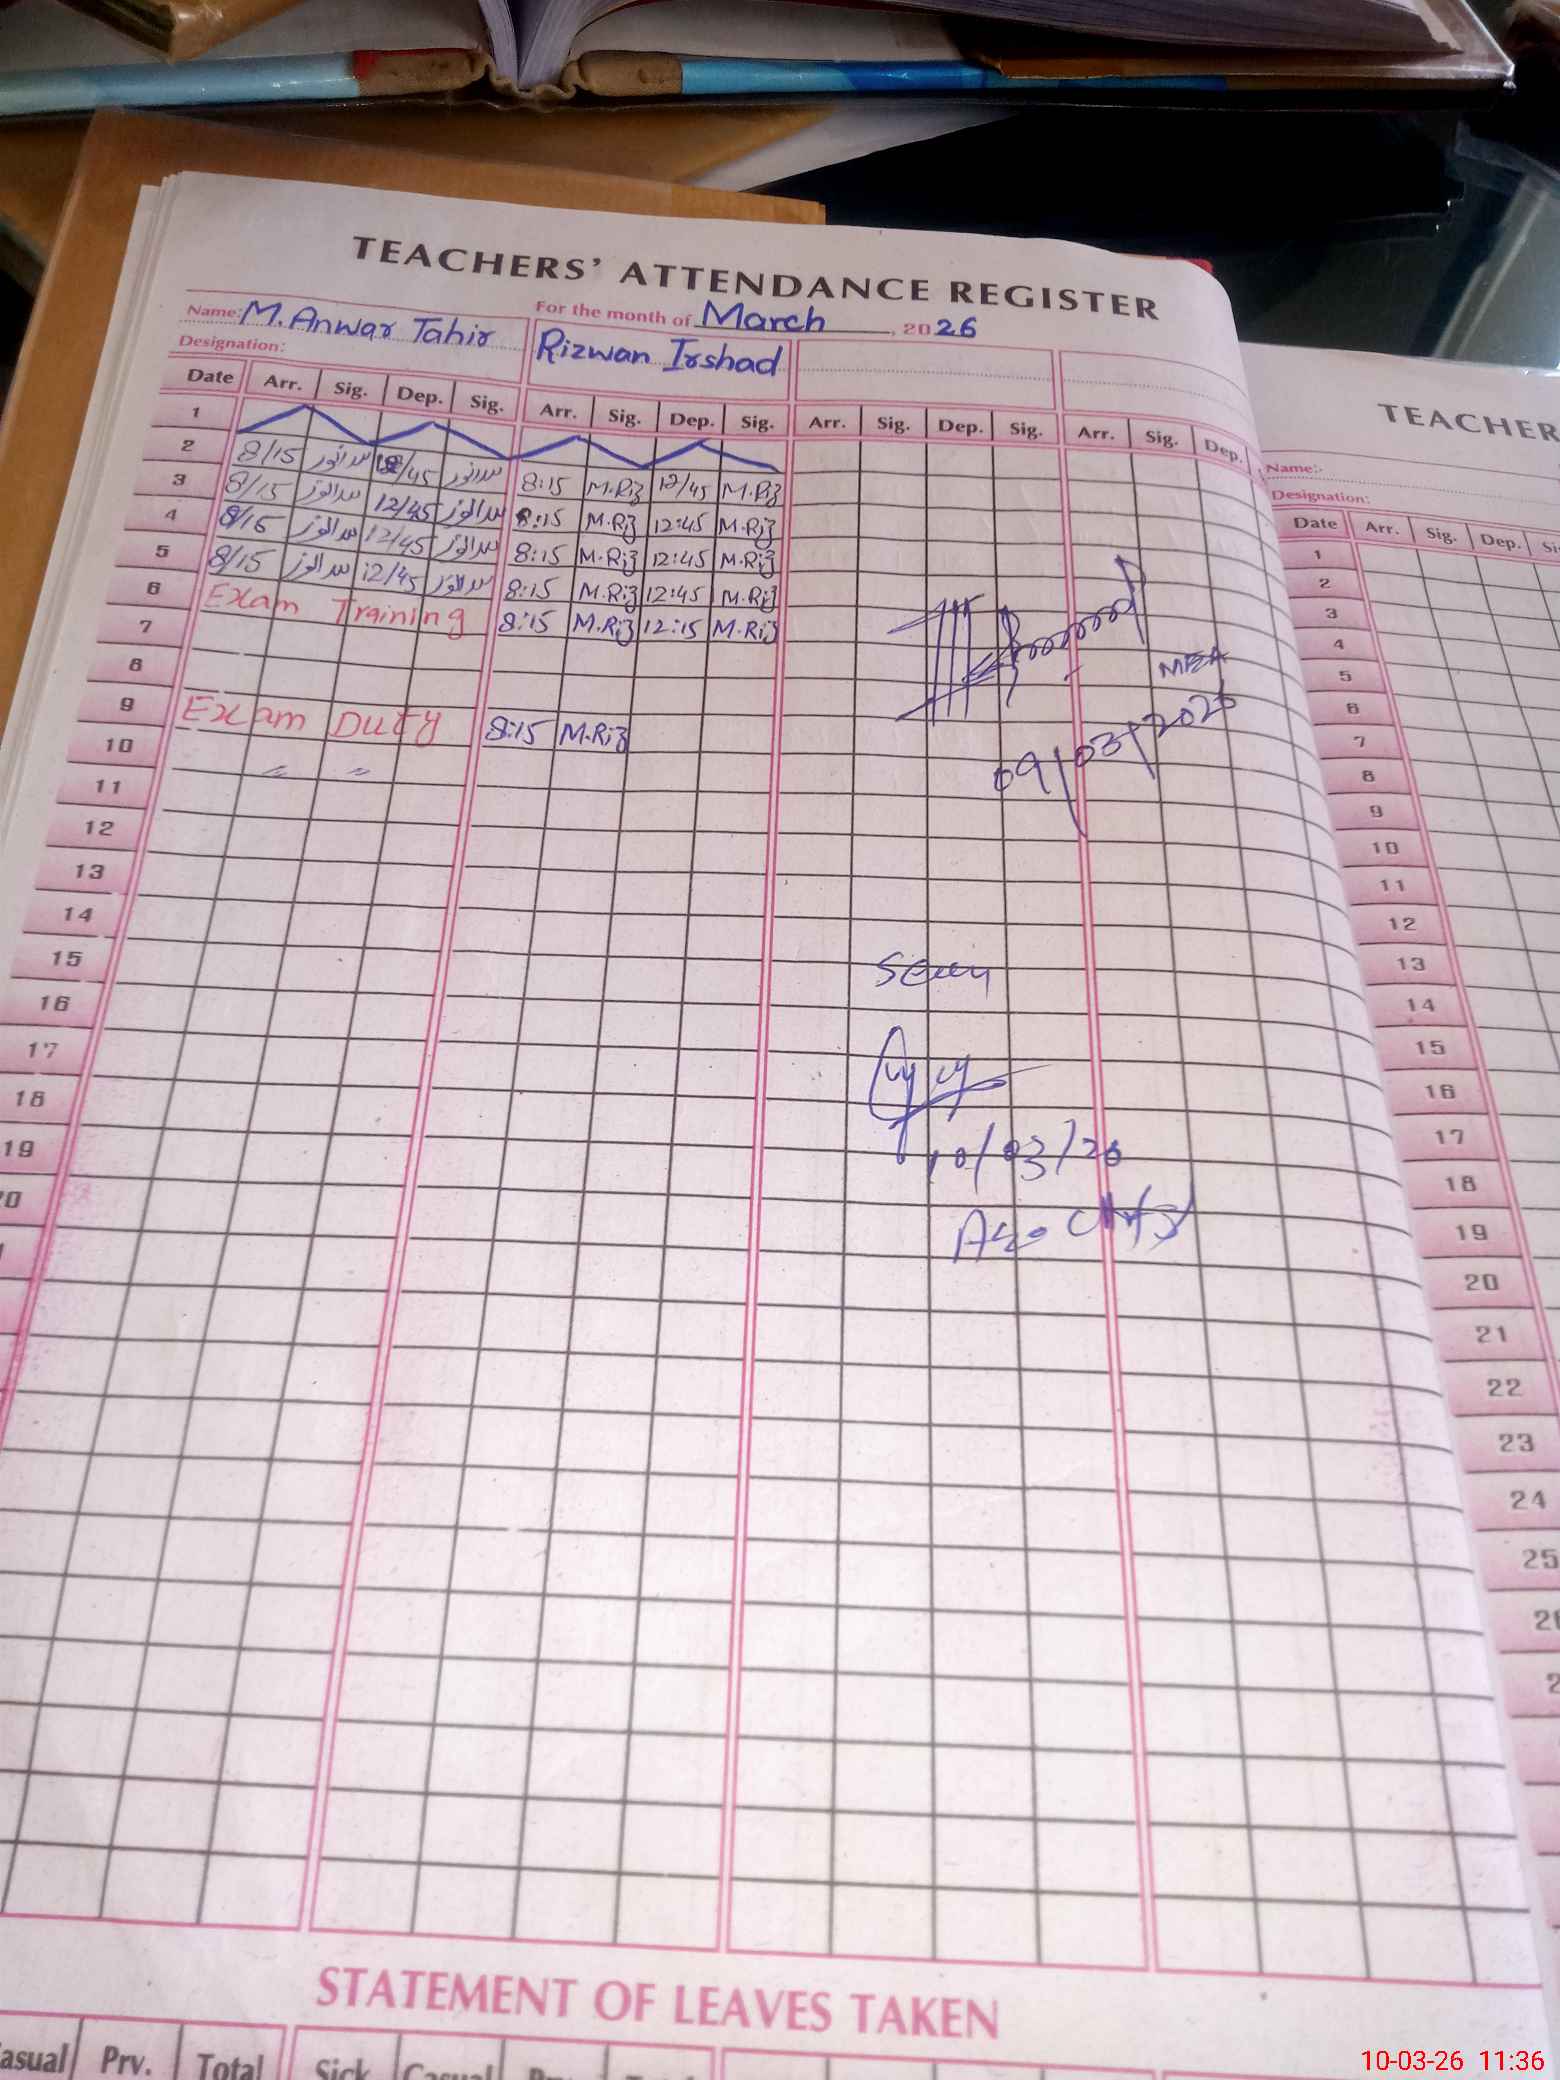 TEACHERS' ATTENDANCE REGISTER
Name: M. Anwar Tahir For the month of March, 2026
Designation: Rizwan Irshad
Date Arr. Sig. Dep. Sig. Arr. Sig. Dep. Sig. Arr. Sig. Dep. Sig. Arr. Sig. Dep.
1
2 8/15 12/45 8:15 M.Riz 12/45 M.Riz
3 8/15 12/45 8:15 M.Riz 12:45 M.Riz
4 8/15 12/45 8:15 M.Riz 12:45 M.Riz
5 8/15 12/45 8:15 M.Riz 12:45 M.Riz
6 Exam Training 8:15 M.Riz 12:15 M.Riz
7
8
9 Exam Duty 8:15 M.Riz
10 〃 〃
11
12
13
14
15
16
17
18
19
MEA
09/03/2026
Seen
10/03/26
STATEMENT OF LEAVES TAKEN
Casual Prv. Total Sick Casual
TEACHER
Name:-
Designation:
Date Arr. Sig. Dep.
1
2
3
4
5
6
7
8
9
10
11
12
13
14
15
16
17
18
19
20
21
22
23
24
25
10-03-26 11:36